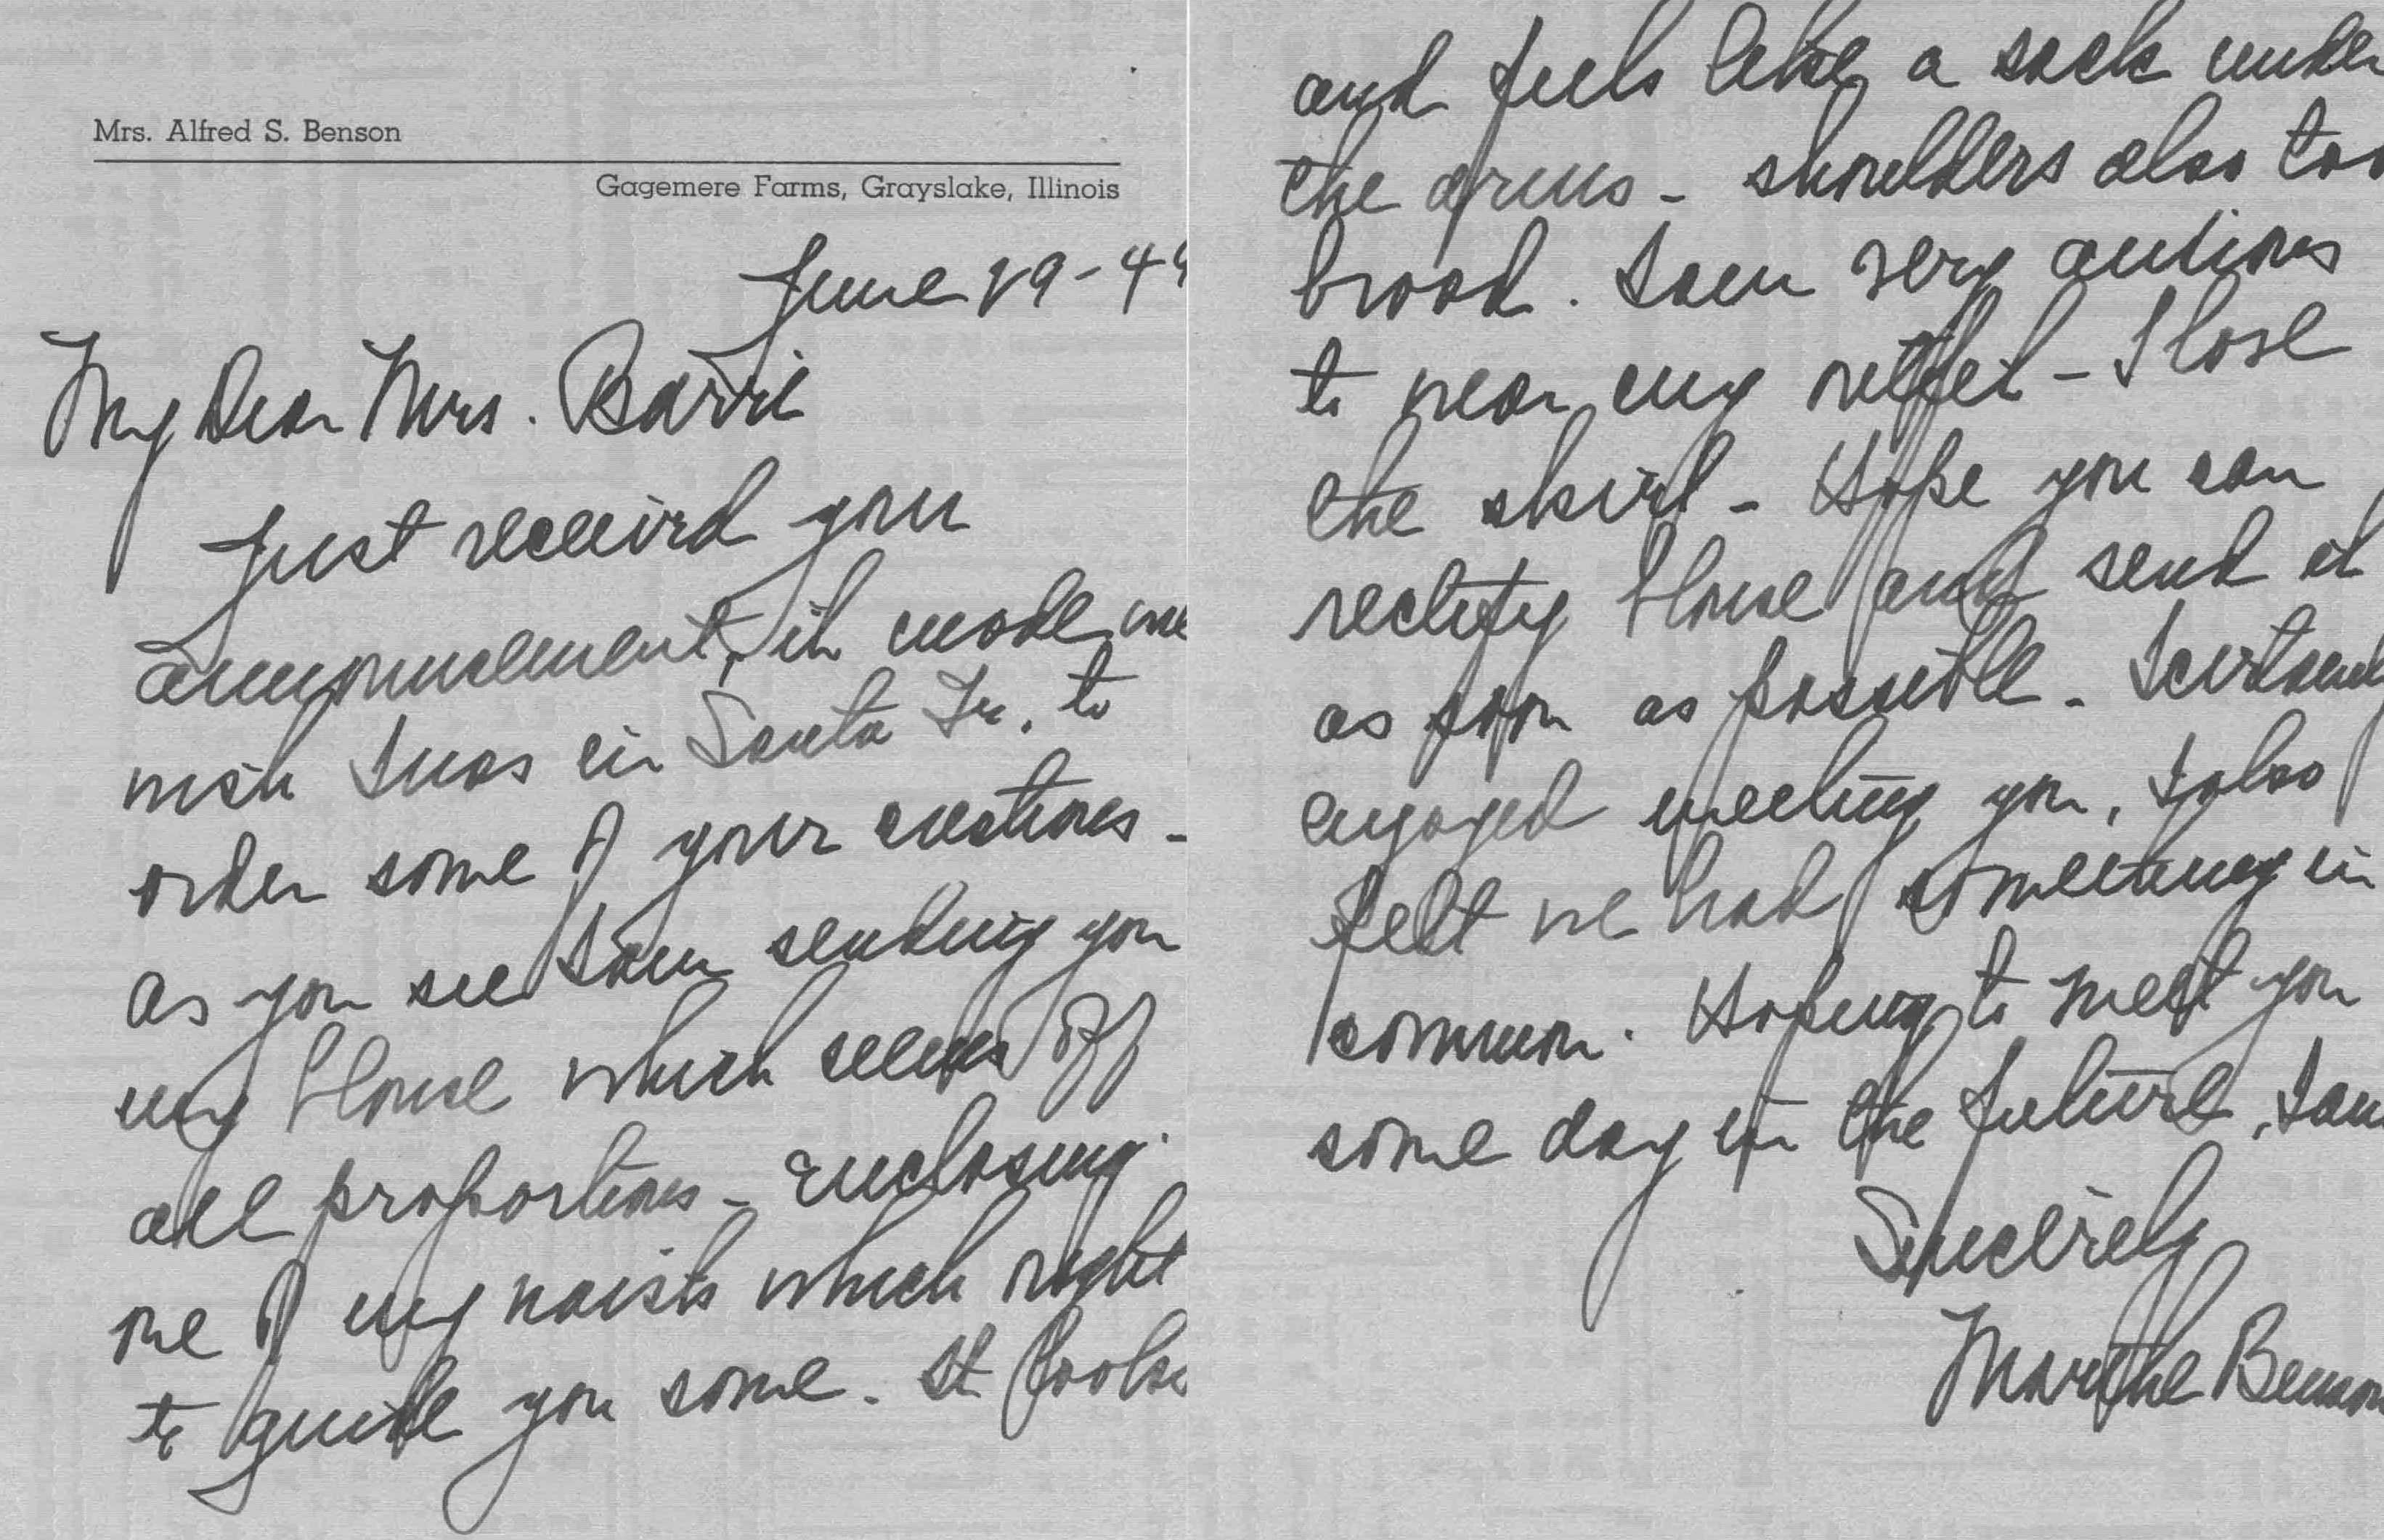 Mrs. Alfred S. Benson
Gagemere Farms, Grayslake, Illinois
June 29-49
My Dear Mrs. Barrie
Just received your
announcement, it made me
wish I was in Santa Fe. to
order some of your creations -
as you see I am sending you
my blouse which seems off
all proportions - Enclosing
one of my waists which might
to guide you some. It looks
and feels like a sack under
the arms - shoulders also too
broad. I am very anxious
to wear my outfit - I lose
the skirt - Hope you can
rectify blouse and send it
as soon as possible. I certainly
enjoyed meeting you, I also
felt we had something in
common. Hoping to meet you
some day in the future, I am
Sincerely
Marthe Benson